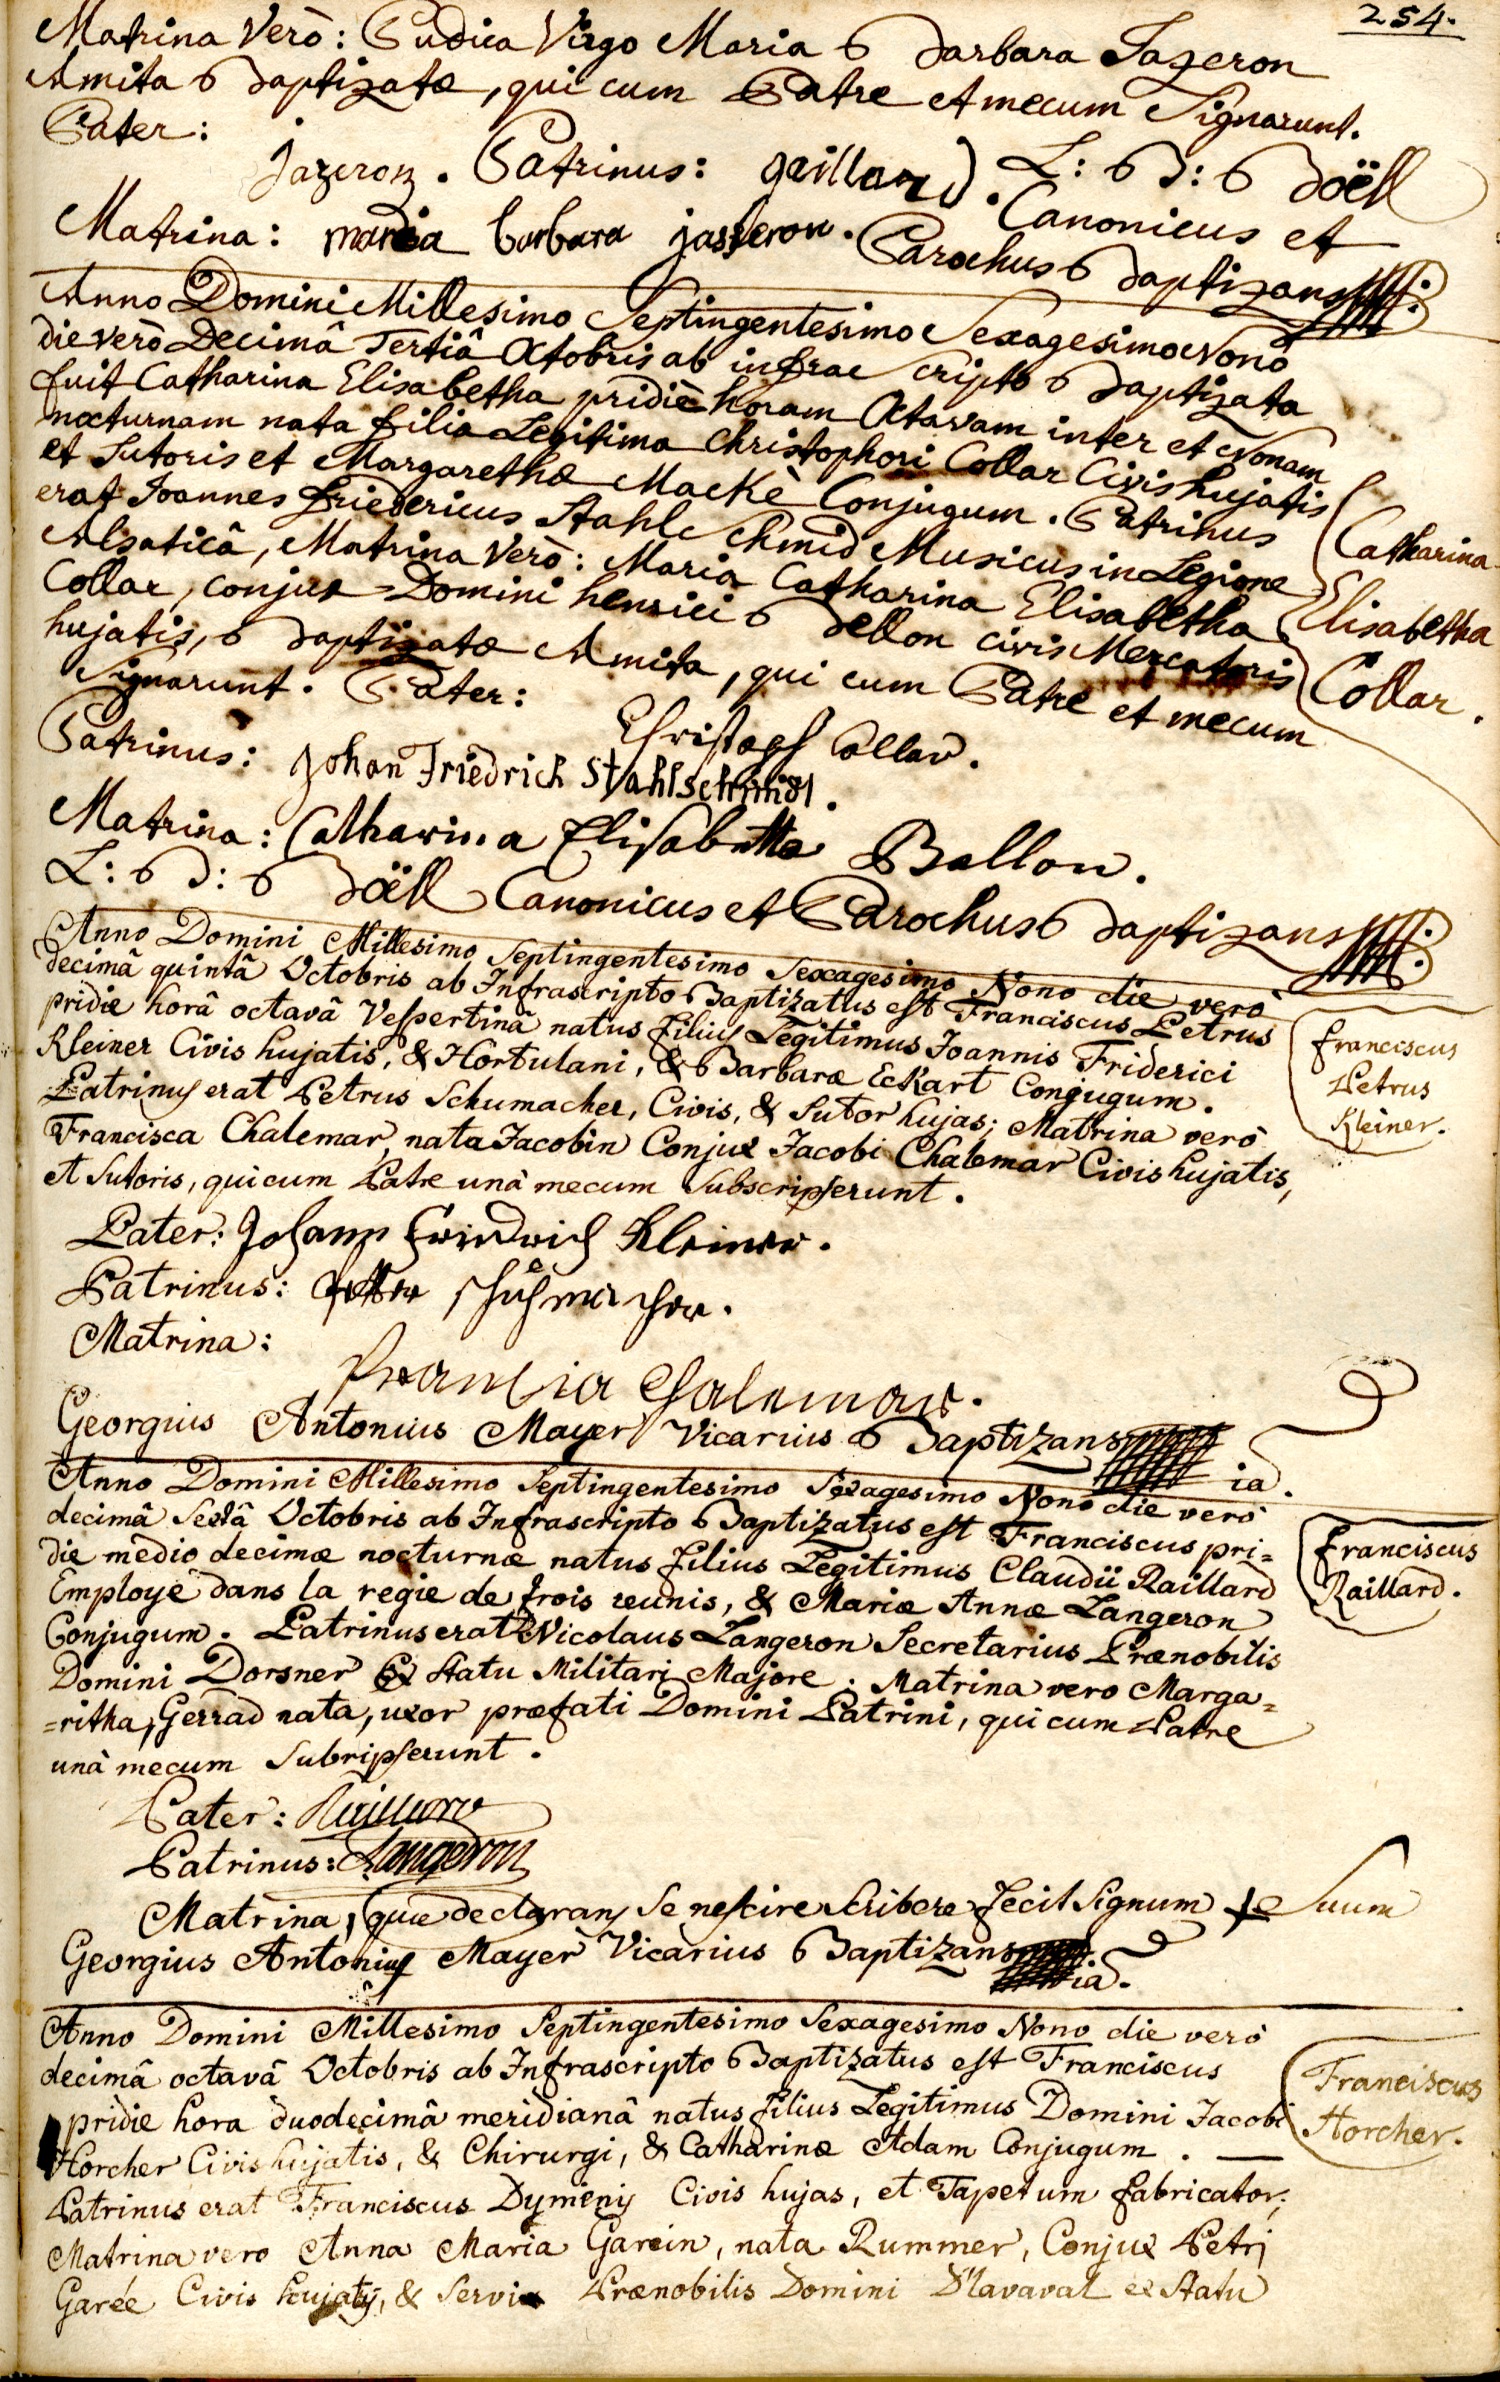 254.
Matrina Verò: Pudica Virgo Maria Barbara Jazeron
Amita Baptizatæ, qui cum Patre et mecum Signarunt.
Pater: Jazeron. Patrinus: gaillard. L: B: Boëll
Matrina: maria barbara jasseron. Canonicus et
Parochus Baptizans
Anno Domini Millesimo Septingentesimo Sexagesimo Nono
die verò Decimâ Tertiâ Octobris ab infra Scripto Baptizata
fuit Catharina Elisabetha pridiè horam Octavam inter et Nonam
nocturnam nata filia Legitima Christophori Collar Civis hujatis
et Sutoris et Margarethæ Mackè Conjugum. Patrinus
erat Joannes Friedericus Stahl Schmid Musicus in Legione
Alsaticâ, Matrina Verò: Maria Catharina Elisabetha
Collar, conjux Domini henrici Bellon civis Mercatoris
hujatis, Baptizatæ Amita, qui cum Patre et mecum
Signarunt. Pater: Christoph Collar.
Catharina
Elisabetha
Collar.
Patrinus: Johan Friedrich Stahlschmidt.
Matrina: Catharina Elisabetta Bellon.
L: B: Boëll Canonicus et Parochus Baptizans
Anno Domini Millesimo Septingentesimo Sexagesimo Nono die verò
decimâ quintâ Octobris ab Infrascripto Baptizatus est Franciscus Petrus
pridie horâ octavâ Vespertinâ natus filius Legitimus Joannis Friderici
Kleiner Civis hujatis, & Hortulani, & Barbaræ Eckart Conjugum.
Patrinus erat Petrus Schumacher, Civis, & Sutor hujas; Matrina verò
Francisca Chalemar nata Jacobin Conjux Jacobi Chalemar Civis hujatis,
et Sutoris, qui cum Patre unà mecum Subscripserunt.
Franciscus
Petrus
Kleiner.
Pater: Johann Fridrich Kleiner.
Patrinus: schuhmacher.
Matrina:
Chalemar.
Georgius Antonius Mayer Vicarius Baptizans
ia.
Anno Domini Millesimo Septingentesimo Sexagesimo Nono die verò
decimâ Sextâ Octobris ab Infrascripto Baptizatus est Franciscus pri=
die medio decimæ nocturnæ natus filius Legitimus Claudii Raillard
Employé dans la regie de trois reunis, & Mariæ Annæ Langeron
Conjugum. Patrinus erat Nicolaus Langeron Secretarius Prænobilis
Domini Dorsner Ex Statu Militari Majore. Matrina vero Marga=
=ritha, Gerrad nata, uxor præfati Domini Patrini, qui cum Patre
unà mecum Subripserunt.
Franciscus
Raillard.
Pater: Raillard
Patrinus: Langeron
Matrina, quæ declarans se nescire Scribere fecit Signum + Suum
Georgius Antonius Mayer Vicarius Baptizans
ia.
Anno Domini Millesimo Septingentesimo Sexagesimo Nono die verò
decimâ octavâ Octobris ab Infrascripto Baptizatus est Franciscus
pridie hora duodecimâ meridianâ natus filius Legitimus Domini Jacobi
Horcher Civis hujatis, & Chirurgi, & Catharinæ Adam Conjugum.
Patrinus erat Franciscus Dymenÿ Civis hujas, et Tapetum fabricator;
Matrina vero Anna Maria Garein, nata Rummer, Conjux Petri
Garée Civis hujatis, & Servi Prænobilis Domini D'Lavaval ex Statu
Franciscus
Horcher.